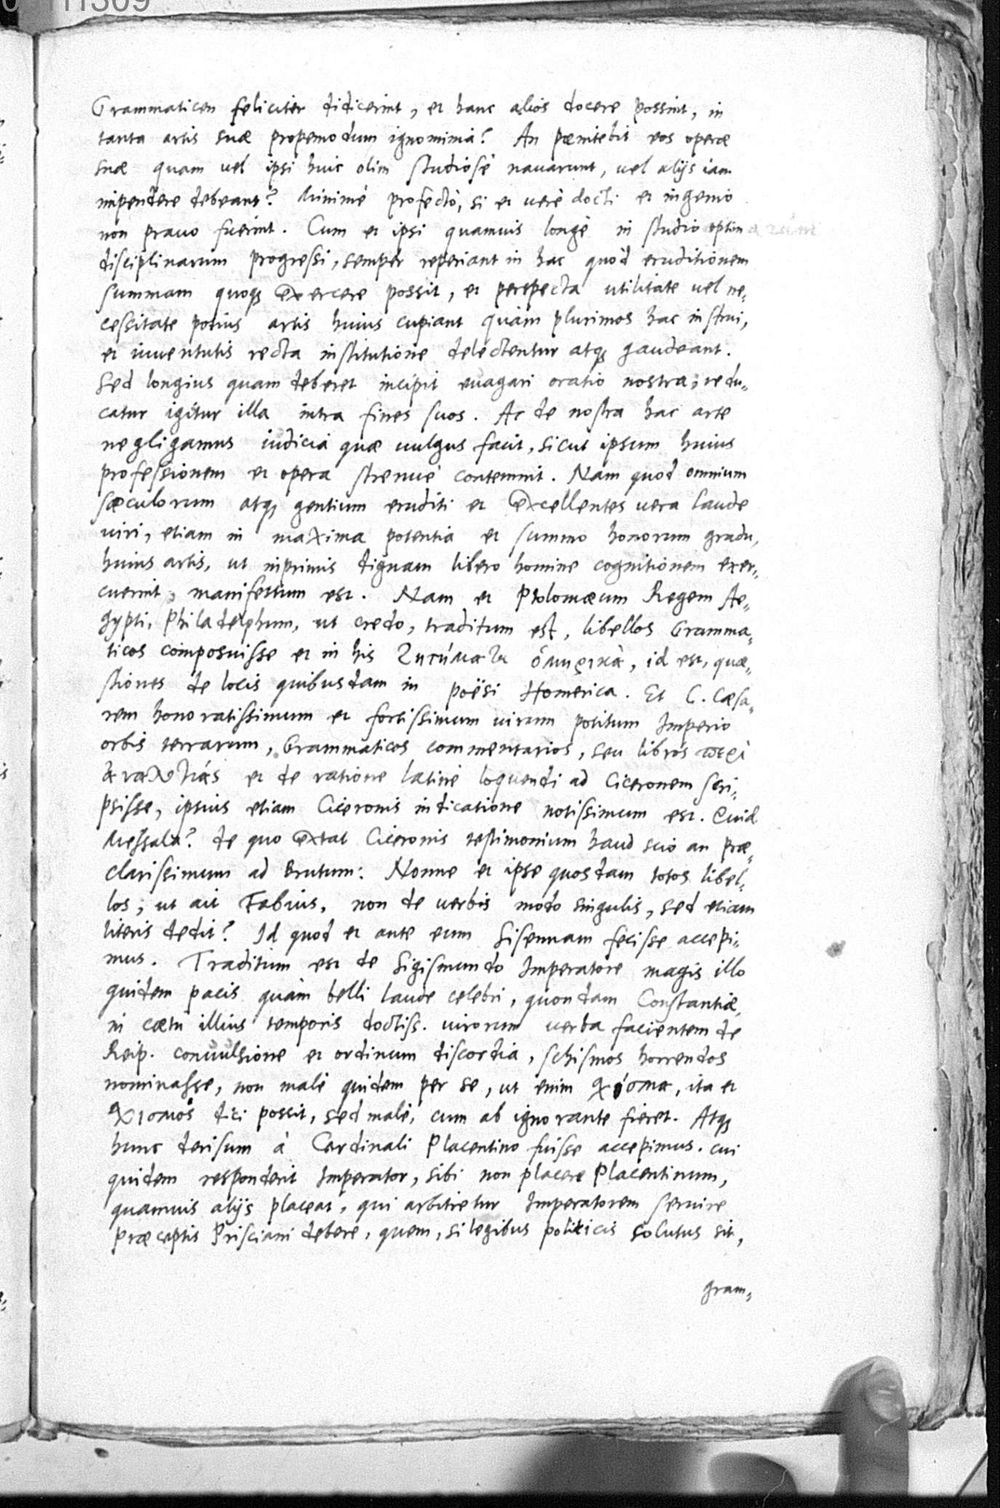 Grammaticen feliciter didicerint, et hanc alios docere possint, in
tanta artis suæ propemodum ignominia? An pœnitebit eos operæ
suæ quam vel ipsi huic olim studiosè navarunt, vel alijs iam
inpendere debeant? Minimè profectò, si et verè docti et ingenio
non pravo fuerint. Cum et ipsi quamvis longè in studio optim
disciplinarum progressi, semper reperiant in hac quod eruditionem
summam quoq; exercere possit, et perspecta utilitate vel ne,
cessitate potius artis huius cupiant quàm plurimos hac instrui,
et iuventutis recta institutione delectentur atq; gaudeant.
Sed longius quam deberet incipit evagari oratio nostra, redu,
catur igitur illa intra fines suos. Ac de nostra hac arte
negligamus iudicia quæ vulgus facit, sicut ipsum huius
professionem et opera strenuè contemnit. Nam quod omnium
sæculorum atq; gentium eruditi et excellentes vera laude
viri, etiam in maxima potentia et summo honorum gradu,
huius artis, ut inprimis dignam libero homine cognitionem exer,
cuerint, manifestum est. Nam et Ptolomæum Regem Ae,
gypti, Philadelphum, ut credo, traditum est, libellos Gramma,
ticos composuisse et in his ζητήματα ὁμηρικὰ, id est, quæ,
stiones de locis quibusdam in poësi Homerica. Et C. Cæsa,
rem honoratissimum et fortissimum virum potitum Imperio
orbis terrarum, Grammaticos commentarios, seu libros περὶ
ἀναλογίας et de ratione latinè loquendi ad Ciceronem scri,
psisse, ipsius etiam Ciceronis indicatione notissimum est. Quid
Messala? de quo extat Ciceronis testimonium haud scio an præ,
clarissimum ad Brutum: Nonne et ipse quosdam totos libel,
los, ut ait Fabius, non de verbis modo singulis, sed etiam
literis dedit? Id quod et ante eum Sisennam fecisse accepi,
mus. Traditum est de Sigismundo Imperatore magis illo
quidem pacis quàm belli laude celebri, quondam Constantiæ
in cœtu illius temporis doctiss. virorum verba facientem de
Reip. convulsione et ordinum discordia, schismos horrendos
nominasse, non malè quidem per se, ut enim χίσμα, ita et
χισμὸς dici possit, sed malè, cum ab ignorante fieret. Atq;
hunc derisum à Cardinali Placentino fuisse accepimus. cui
quidem responderit Imperator, sibi non placere Placentinum,
quamvis alijs placeat, qui arbitretur Imperatorem servire
Præceptis Prisciani debere, quem, si legibus politicis solutus sit,
gram,